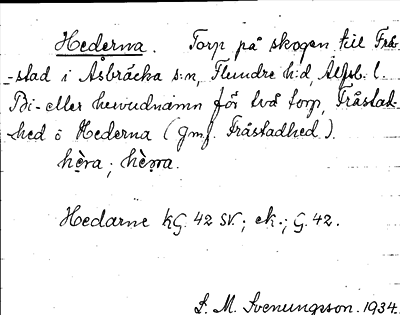 Hederna. Torp på skogen till Frå-
-stad i Åsbräcka s:n, Flundre h:d, Älfsb. l.
Bi- eller huvudnamn för två torp, Fråstad-
-hed o Hederna (Jmf. Fråstadhed).
hèra; hèṇa.
Hedarne kG. 42 SV.; ek.; G. 42.
S. M. Svenungsson. 1934.